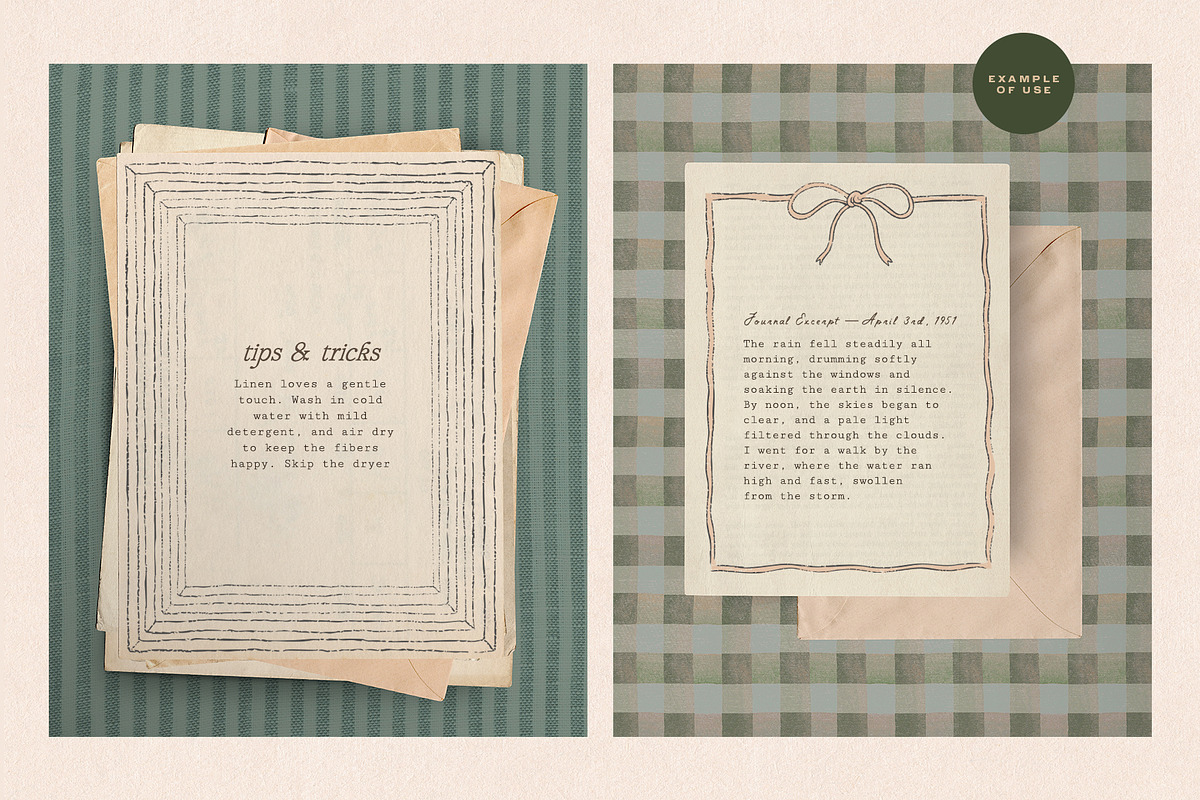 EXAMPLE
OF USE
tips & tricks
Linen loves a gentle
touch. Wash in cold
water with mild
detergent, and air dry
to keep the fibers
happy. Skip the dryer
Journal Excerpt — April 3rd, 1951
The rain fell steadily all
morning, drumming softly
against the windows and
soaking the earth in silence.
By noon, the skies began to
clear, and a pale light
filtered through the clouds.
I went for a walk by the
river, where the water ran
high and fast, swollen
from the storm.